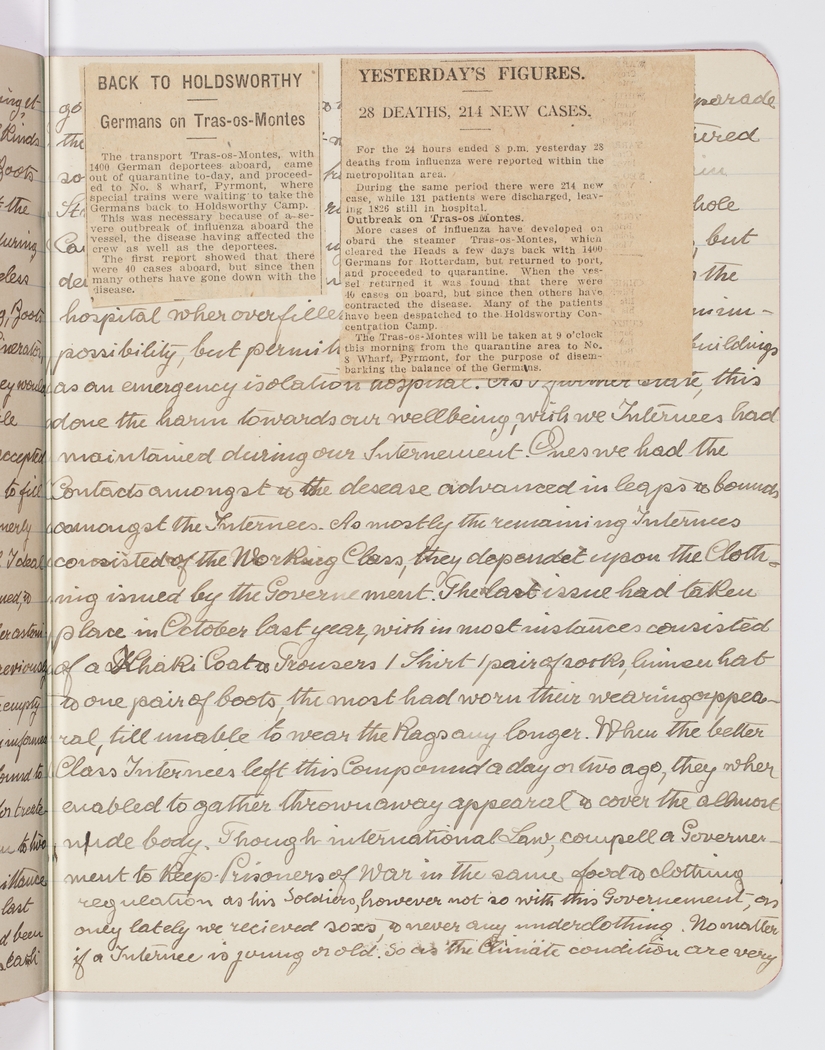 BACK TO HOLDSWORTHY
Germans on Tras-os-Montes
The transport Tras-os-Montes, with
1400 German deportees aboard, came
out of quarantine to-day, and proceed-
ed to No. 8 wharf, Pyrmont, where
special trains were waiting to take the
Germans back to Holdsworthy Camp.
This was necessary because of a se-
vere outbreak of influenza aboard the
vessel, the disease having affected the
crew as well as the deportees.
The first report showed that there
were 40 cases aboard, but since then
many others have gone down with the
disease.
YESTERDAY'S FIGURES.
28 DEATHS, 214 NEW CASES.
For the 24 hours ended 8 p.m. yesterday 28
deaths from influenza were reported within the
metropolitan area.
During the same period there were 214 new
case, while 131 patients were discharged, leav-
ing 1826 still in hospital.
Outbreak on Tras-os Montes.
More cases of influenza have developed on
obard the steamer Tras-os-Montes, which
cleared the Heads a few days back with 1400
Germans for Rotterdam, but returned to port,
and proceeded to quarantine. When the ves-
sel returned it was found that there were
40 cases on board, but since then others have
contracted the disease. Many of the patients
have been despatched to the Holdsworthy Con-
centration Camp.
The Tras-os-Montes will be taken at 9 o'clock
this morning from the quarantine area to No.
8 Wharf, Pyrmont, for the purpose of disem-
barking the balance of the Germans.
go parade
the
so
hole
but
the
hospital wher overfille
possibility, but permi buildings
as an emergency isolation hospital. this
done the harm towards our wellbeing, wish we Internees had
maintained during our Internement. Ones we had the
Contacts amongst us the desease advanced in leaps & bounds
amongst the Internees. As mostly the remaining Internees
consisted of the Working Class, they dependet upon the Cloth-
ing issued by the Governement. The last issue had taken
place in October last year, wish in most instances consisted
of a Khaki Coat & Trousers 1 Shirt 1 pair of socks, linnen hat
& one pair of boots, the most had worn their wearing appea-
ral, till unable to wear the Rags any longer. When the better
Class Internees left this Compound a day or two ago, they wher
enabled to gather thrown away appearal to cover the allmost
nude body. Though international Law, compell a Governer-
ment to Keep Prisoners of War in the same food & clothing
regulation as his Soldiers, however not so with this Governement, as
only lately we recieved soxs, & never any underclothing. No matter
if a Internee is young or old. So as the Climate condition are very